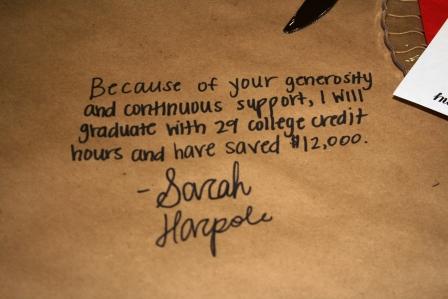 Because of your generosity
and continuous support, I will
graduate with 29 college credit
hours and have saved $12,000.
- Sarah
Harpole